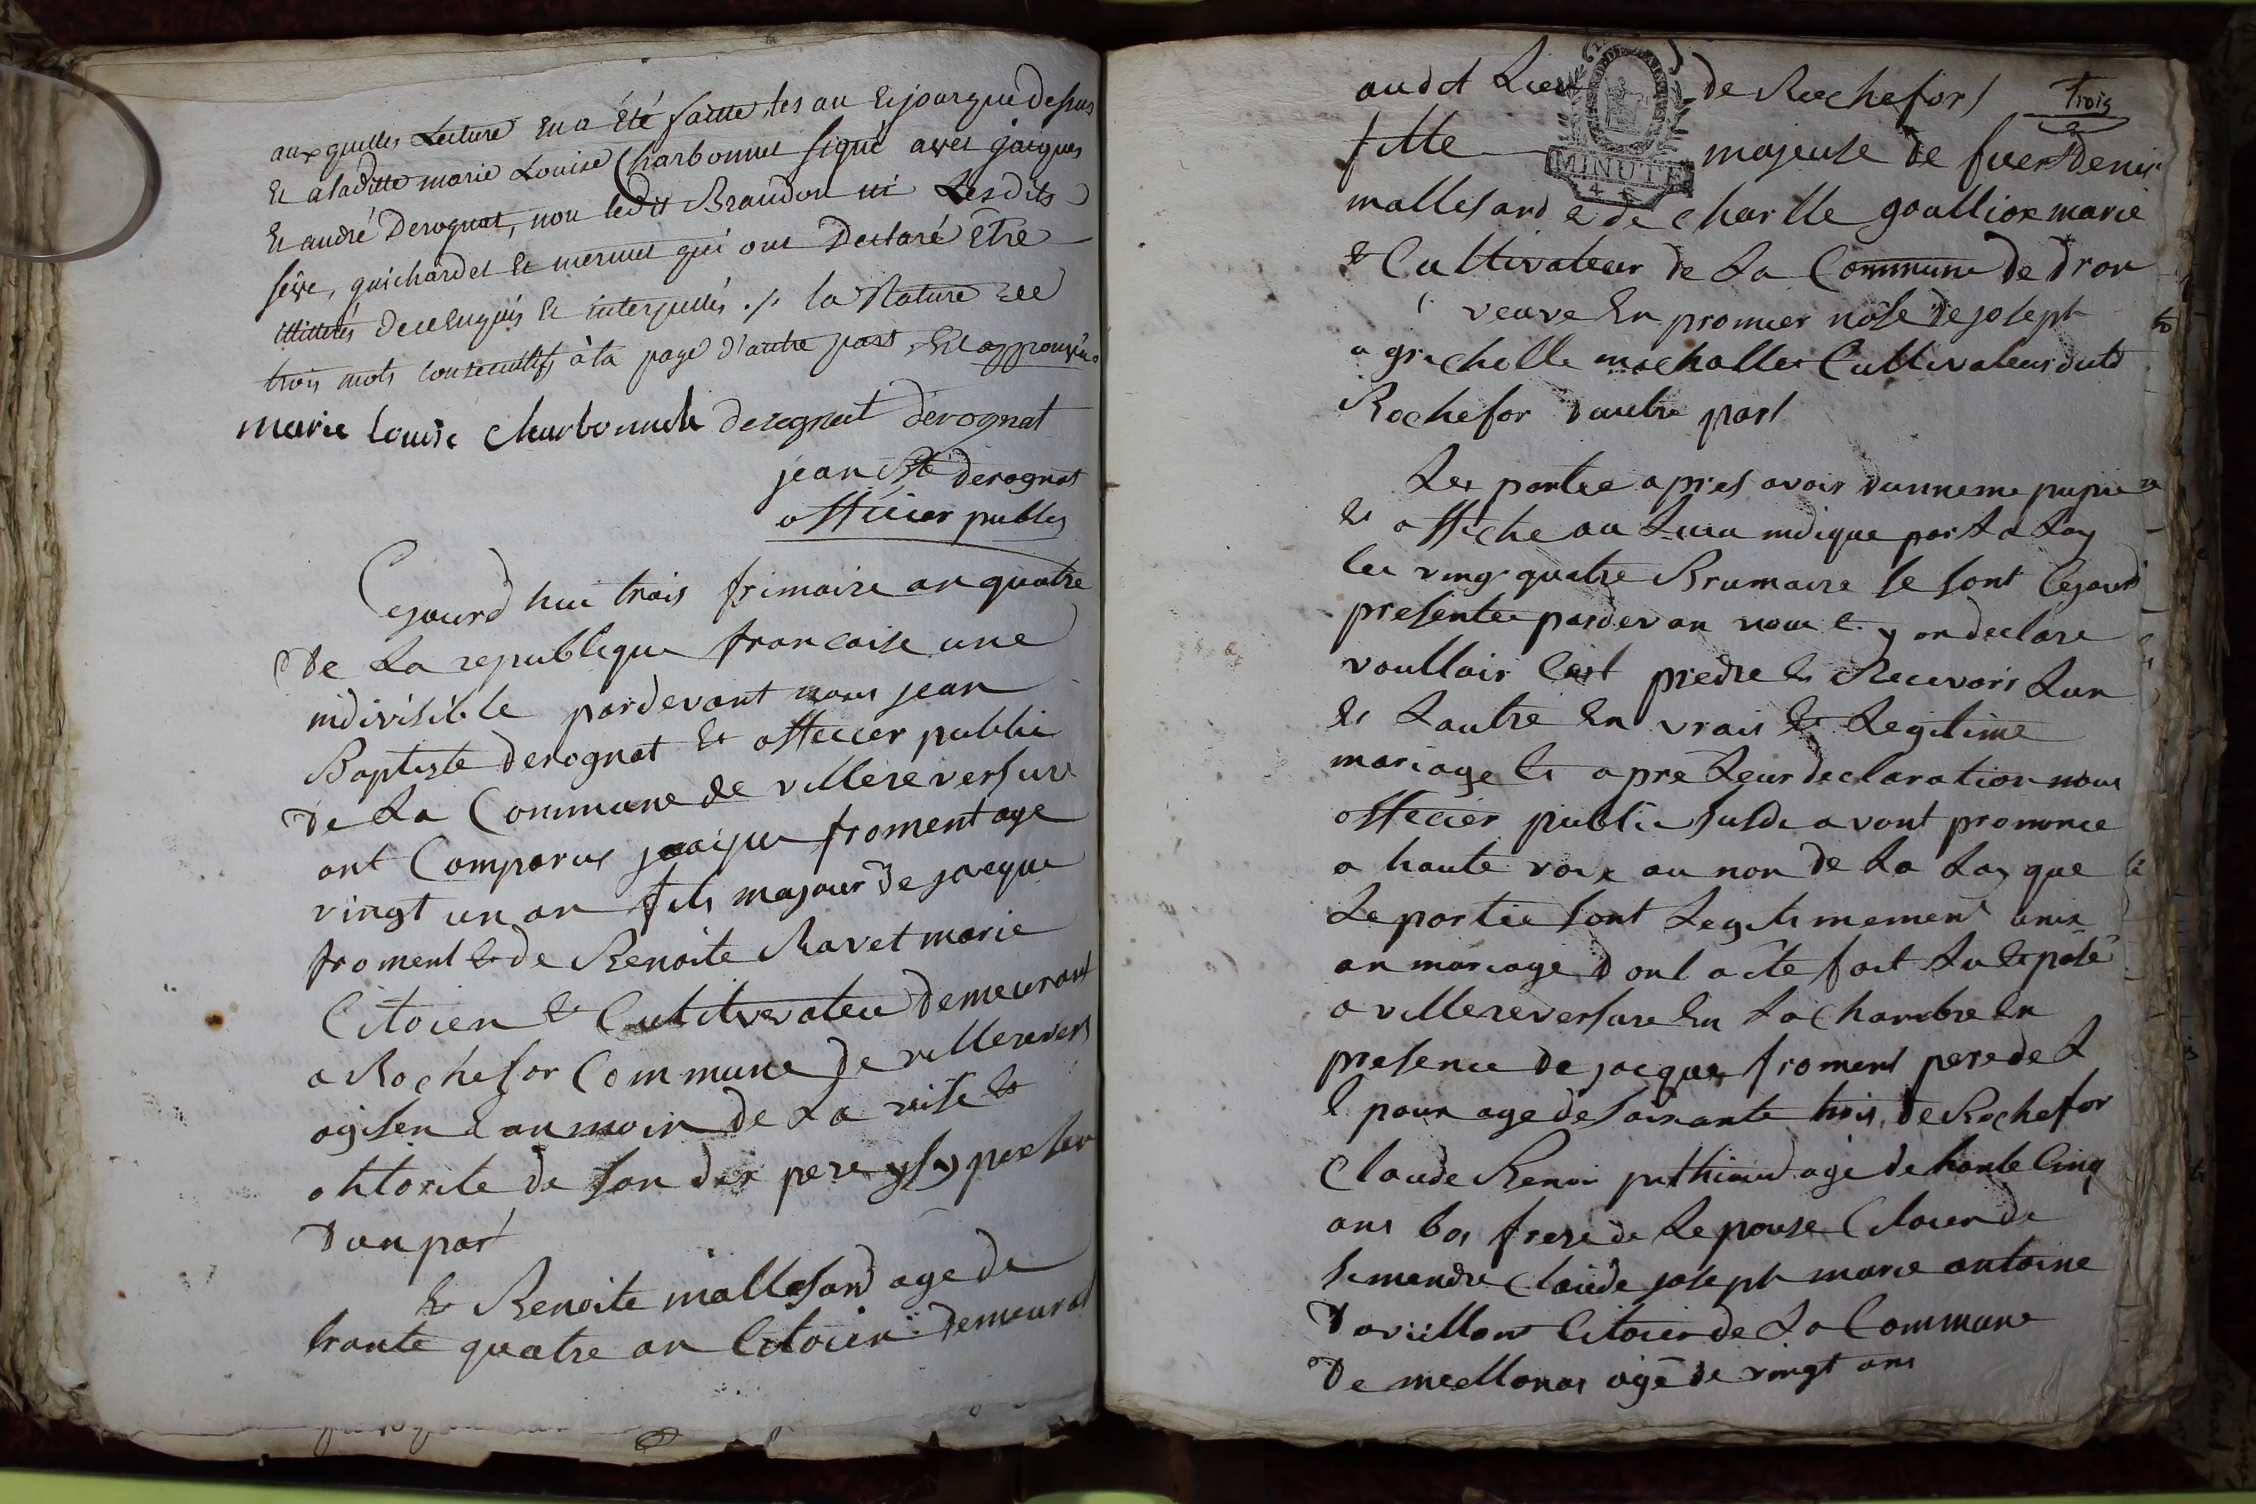 auxquelles Lecture en a été faitte les an et jour que dessus
et a laditte marie Louise Charbonnet signé avec jacques
Et andré Derognat, non ledit Brandon ni Lesdits
sève, guichardet et mermet qui ont Declaré Etre
illitterés de ce enquis et interpellés ./. la Rature de
trois mots consecutifs à la page d'autre part Est approuvée
marie Louise charbonnet derognat derognat
jean Bte derognat
officier public
Cejourd hui trois frimaire an quatre
De La republique francaise une
indivisible pardevant nous jean
Baptiste derognat Et officier public
De La Commune de villereversure
ont Comparus jacque froment age
vingt un an fils majour de jacque
froment et de Benoite Ravet marie
Citoien et Cultivateu Demeurant
a Rochefor Commune de villerevers
agisen Lanmoin de La vise et
ohtorite de son der pere y
Dun part
Et Benoite mallesard age de
trante quatre an Citoien Demeurat
audt Lieu de Rochefort
Trois
MINUTE
fille majeuse de fuer Denis
mallesard e de charlle goulliox marie
et Cultivateur de La Commune de drom
veuve En promier nose de joseph
machallet Cultivateur dutd
Rochefor dautre part
Les partie apres avoir
et affiche au Lieu indique par La Loy
les vingt quatre Brumaire se sont Cejourd
presentee pardevan nous et y on declare
voulloir predre et Recevoir Lun
et Lautre En vrais et Legitime
mariage et apre Leur declaration nous
officier public susdi avont prononce
a haute voix au non de La Loy que
Le partie sont Legitimement unix
an mariage Dont acte fait Lu et pasé
a villereversure En La Chambre En
presence de jacque froment pere de L
E poux age de soixante trois, de Rochefor
Claude Benoi puthiaud agé de trante Cinq
ans bos frere de Lepouse Citoien de
simandre Claude joseph marie antoine
Citoien de La Commune
De meillonas agé de vingt ans